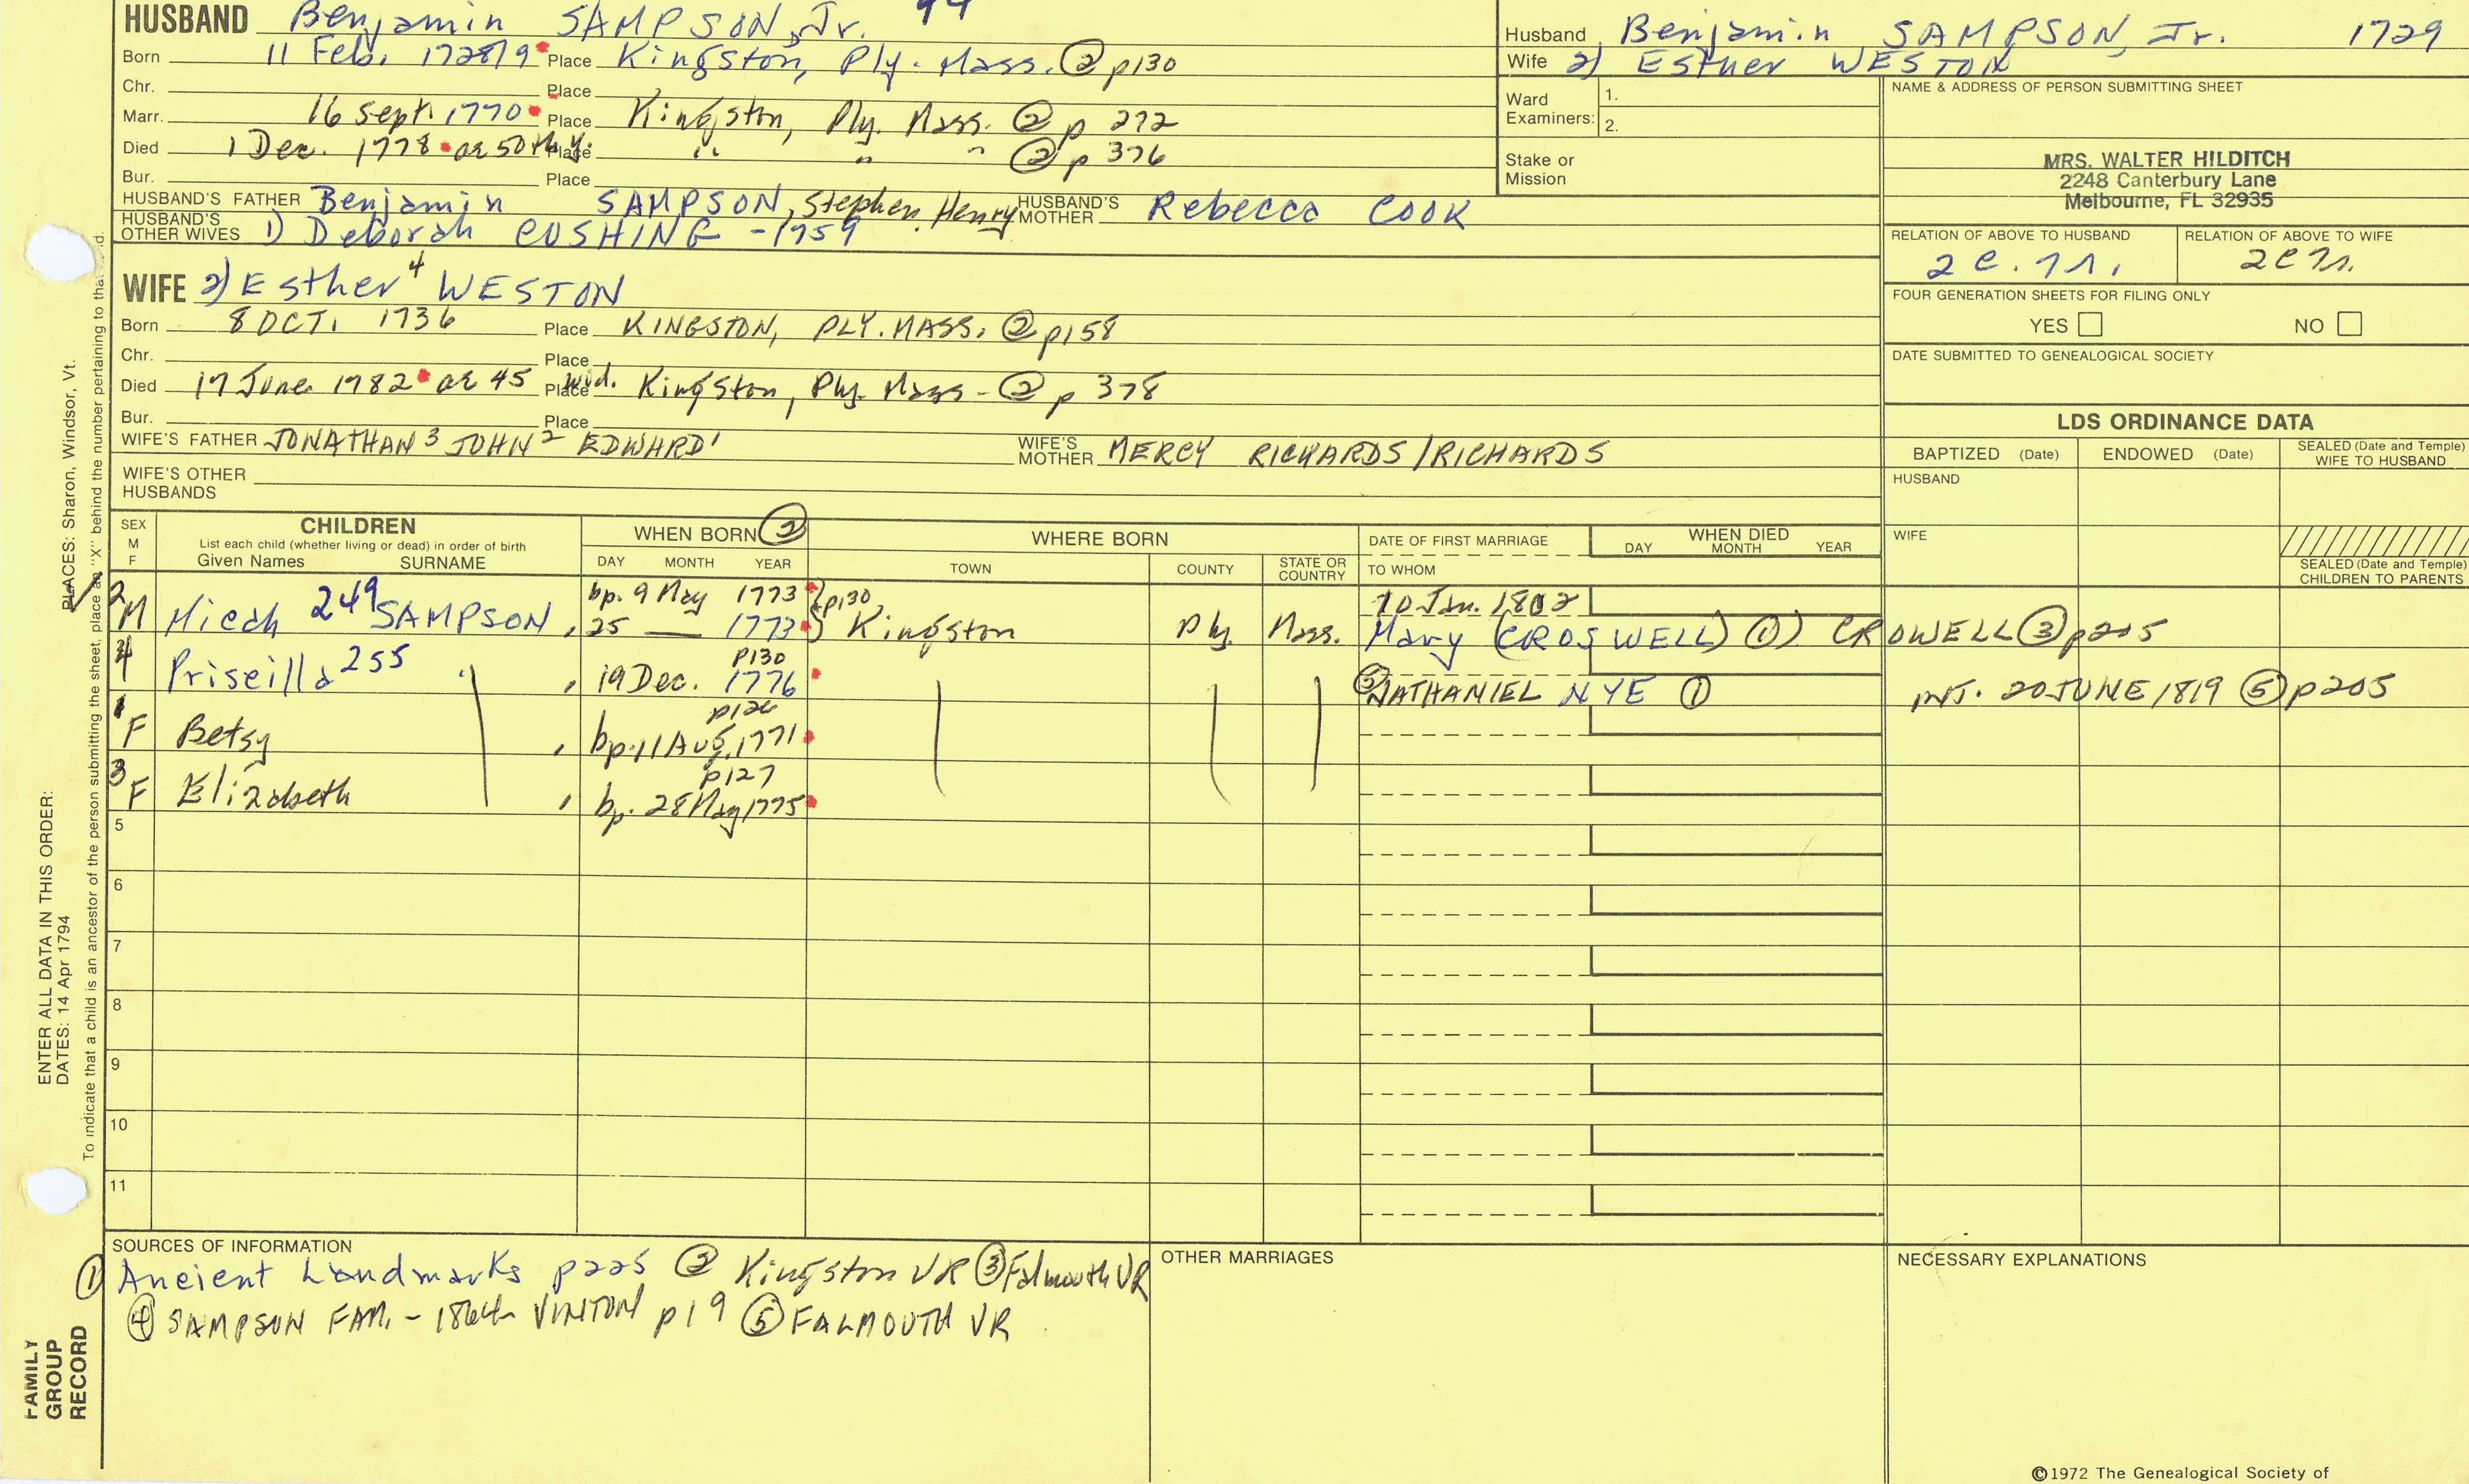 HUSBAND Benjamin SAMPSON, Jr.
Born 11 Feb. 1728/9 Place Kingston, Ply. Mass. ② p130
Chr. Place
Marr. 16 Sept. 1770 Place Kingston, Ply. Mass. ② p 272
Died 1 Dec. 1778 ae 50th y. Place " " " ② p 376
Bur. Place
HUSBAND'S FATHER Benjamin SAMPSON, Stephen, Henry HUSBAND'S MOTHER Rebecca COOK
HUSBAND'S OTHER WIVES 1) Deborah CUSHING -1759
WIFE 2) Esther⁴ WESTON
Born 8 OCT. 1736 Place KINGSTON, PLY. MASS. ② p158
Chr. Place
Died 17 June 1782 ae 45 Place wid. Kingston, Ply. Mass - ② p 378
Bur. Place
WIFE'S FATHER JONATHAN³ JOHN² EDWARD¹ WIFE'S MOTHER MERCY RICHARDS/RICHARDS
WIFE'S OTHER HUSBANDS
Husband Benjamin SAMPSON, Jr. 1729
Wife 2) Esther WESTON
Ward Examiners: 1.
2.
Stake or Mission
NAME & ADDRESS OF PERSON SUBMITTING SHEET
MRS. WALTER HILDITCH
2248 Canterbury Lane
Melbourne, FL 32935
RELATION OF ABOVE TO HUSBAND RELATION OF ABOVE TO WIFE
FOUR GENERATION SHEETS FOR FILING ONLY
YES NO
DATE SUBMITTED TO GENEALOGICAL SOCIETY
LDS ORDINANCE DATA
BAPTIZED (Date) ENDOWED (Date) SEALED (Date and Temple) WIFE TO HUSBAND
HUSBAND
WIFE
SEALED (Date and Temple) CHILDREN TO PARENTS
SEX M F CHILDREN WHEN BORN ② WHERE BORN DATE OF FIRST MARRIAGE WHEN DIED
List each child (whether living or dead) in order of birth
Given Names SURNAME DAY MONTH YEAR TOWN COUNTY STATE OR COUNTRY TO WHOM DAY MONTH YEAR
2 bp. 9 May 1773 p130 10 Jan. 1802
M 249 SAMPSON, 25 — 1773 Kingston Ply. Mass. Mary (CROSWELL) ① CROWELL ③ p205
4 Priscilla 255 " , 19 Dec. P130 1776 ⑤ NATHANIEL NYE ① INT. 20 JUNE 1819 ⑤ p205
1 F Betsy , p126 bp. 11 Aug. 1771
3 F Elizabeth , p127 bp. 28 May 1775
5
6
7
8
9
10
11
SOURCES OF INFORMATION
① Ancient Landmarks p225 ② Kingston VR ③ Falmouth VR
④ SAMPSON FAM. - 1864 VINTON p19 ⑤ FALMOUTH VR
OTHER MARRIAGES
NECESSARY EXPLANATIONS
©1972 The Genealogical Society of
PLACES: Sharon, Windsor, Vt.
ENTER ALL DATA IN THIS ORDER:
DATES: 14 Apr 1794
To indicate that a child is an ancestor of the person submitting the sheet, place an "X" behind the number pertaining to that
FAMILY
GROUP
RECORD